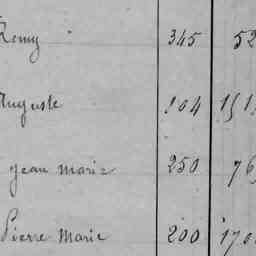 Remy 345 52
Auguste 104 151
Jean Marie 250 76
Pierre Marie 200 170